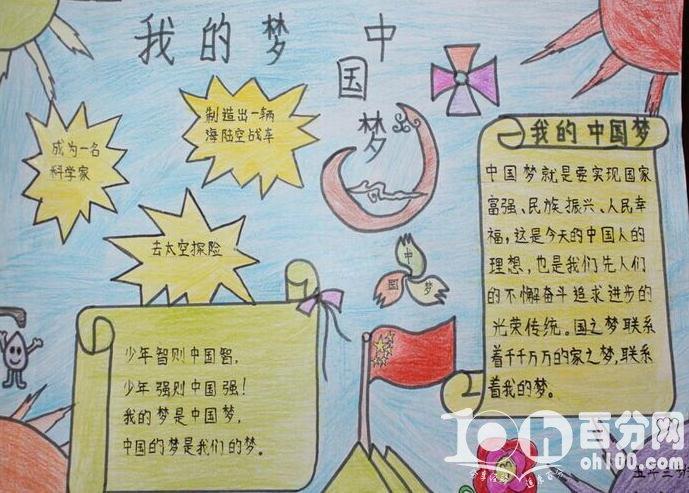 我的梦
中国梦
制造出一辆
海陆空战车
成为一名
科学家
去太空探险
中
国 梦
我的中国梦
中国梦就是要实现国家
富强、民族振兴、人民幸
福,这是今天的中国人的
理想,也是我们先人们
的不懈奋斗追求进步的
光荣传统。国之梦联系
着千千万万的家之梦,联系
着我的梦。
少年智则中国智,
少年强则中国强!
我的梦是中国梦,
中国的梦是我们的梦。
100 百分网
oh100.com